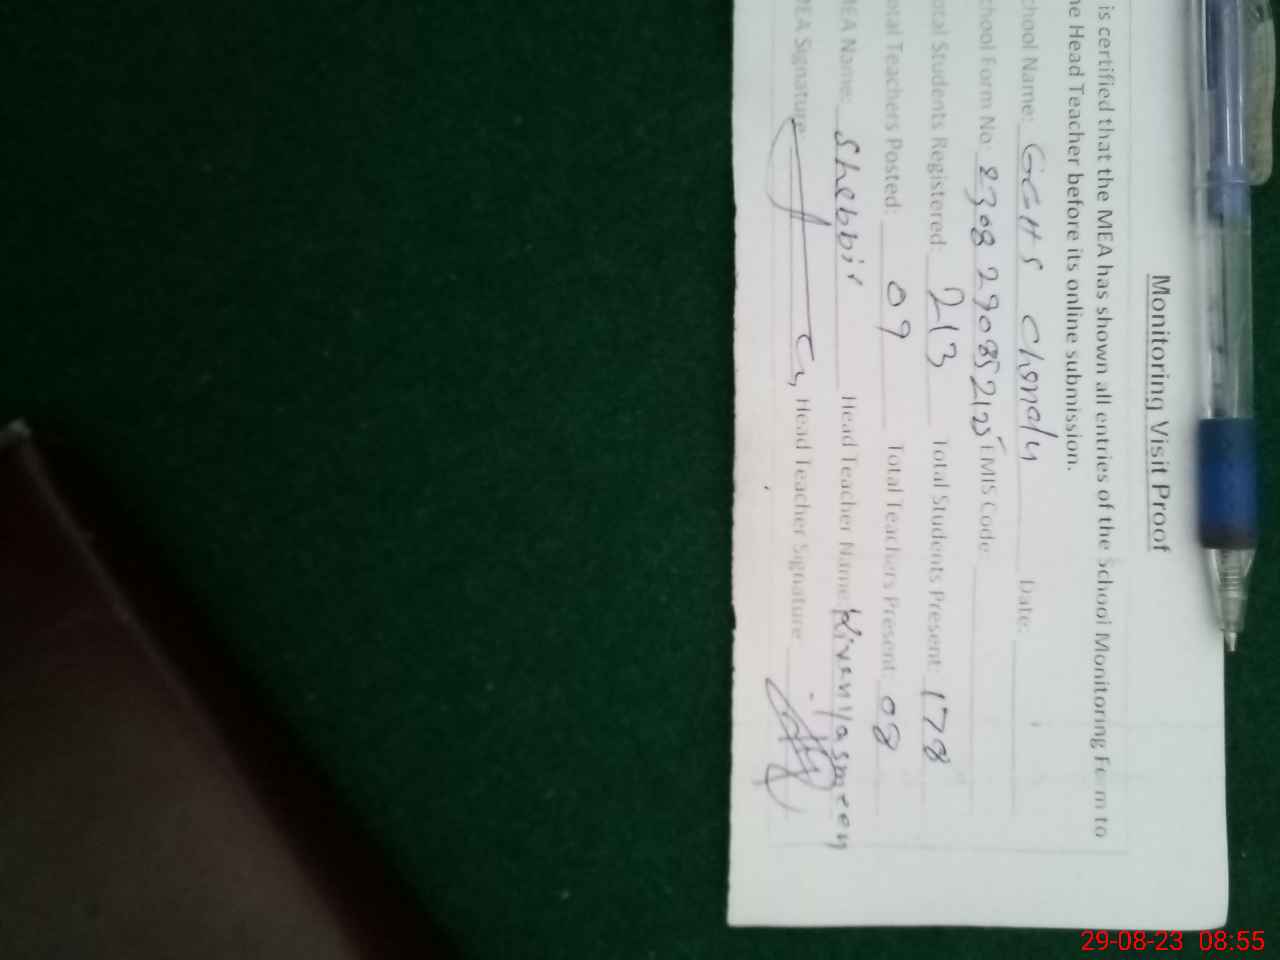 Monitoring Visit Proof
is certified that the MEA has shown all entries of the School Monitoring Form to
he Head Teacher before its online submission.
chool Name: GGHS Date:
chool Form No: 2308290852125 EMIS Code:
otal Students Registered: 213 Total Students Present: 178
otal Teachers Posted: 09 Total Teachers Present: 08
MEA Name: Shabbir Head Teacher Name: Kiran Yasmeen
MEA Signature Head Teacher Signature
29-08-23 08:55